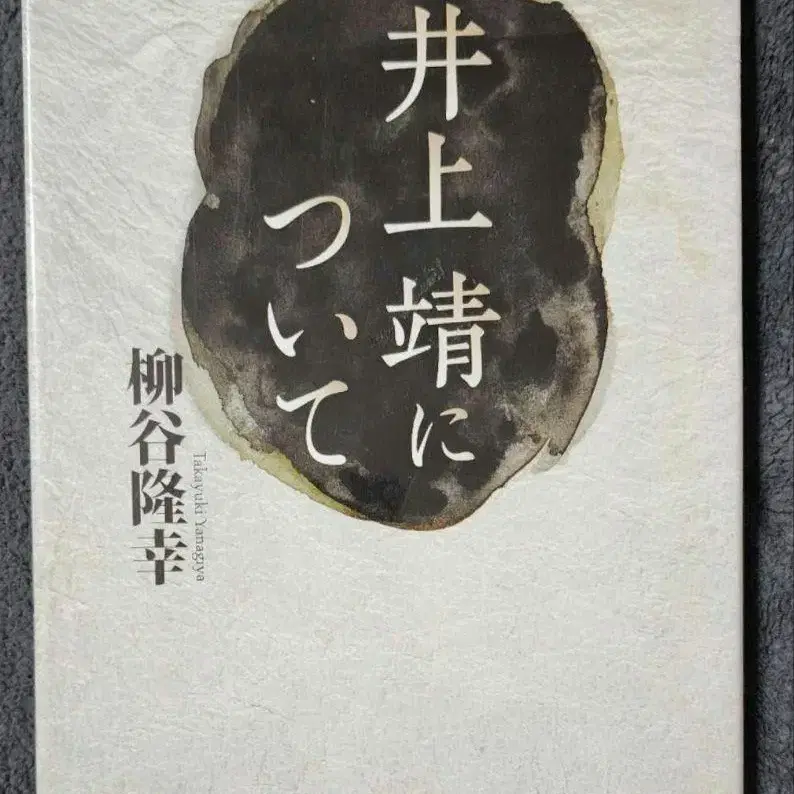 井上靖に
ついて
柳谷隆幸
Takayuki Yanagiya